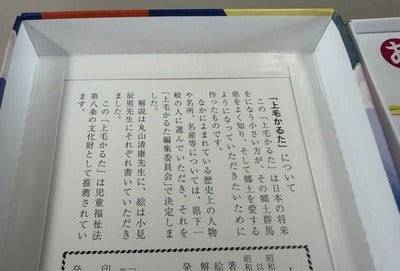 「上毛かるた」について
この「上毛かるた」は日本の将来
をになう小さい方が、その郷土群馬
県をよく知り、そして郷土を愛する
ようになっていただきたいために
作ったものです。
なかによまれている歴史上の人物
や名所、名産等については、県下一
般の人に選んでいただき、それを
「上毛かるた編集委員会」で決定しま
した。
解説は丸山清康先生に、絵は小見
辰男先生にそれぞれ書いていただき
ました。
この「上毛かるた」は児童福祉法
第八条の文化財として推薦されてい
ます。
昭和
昭和
著
絵
解
発
印
発
お